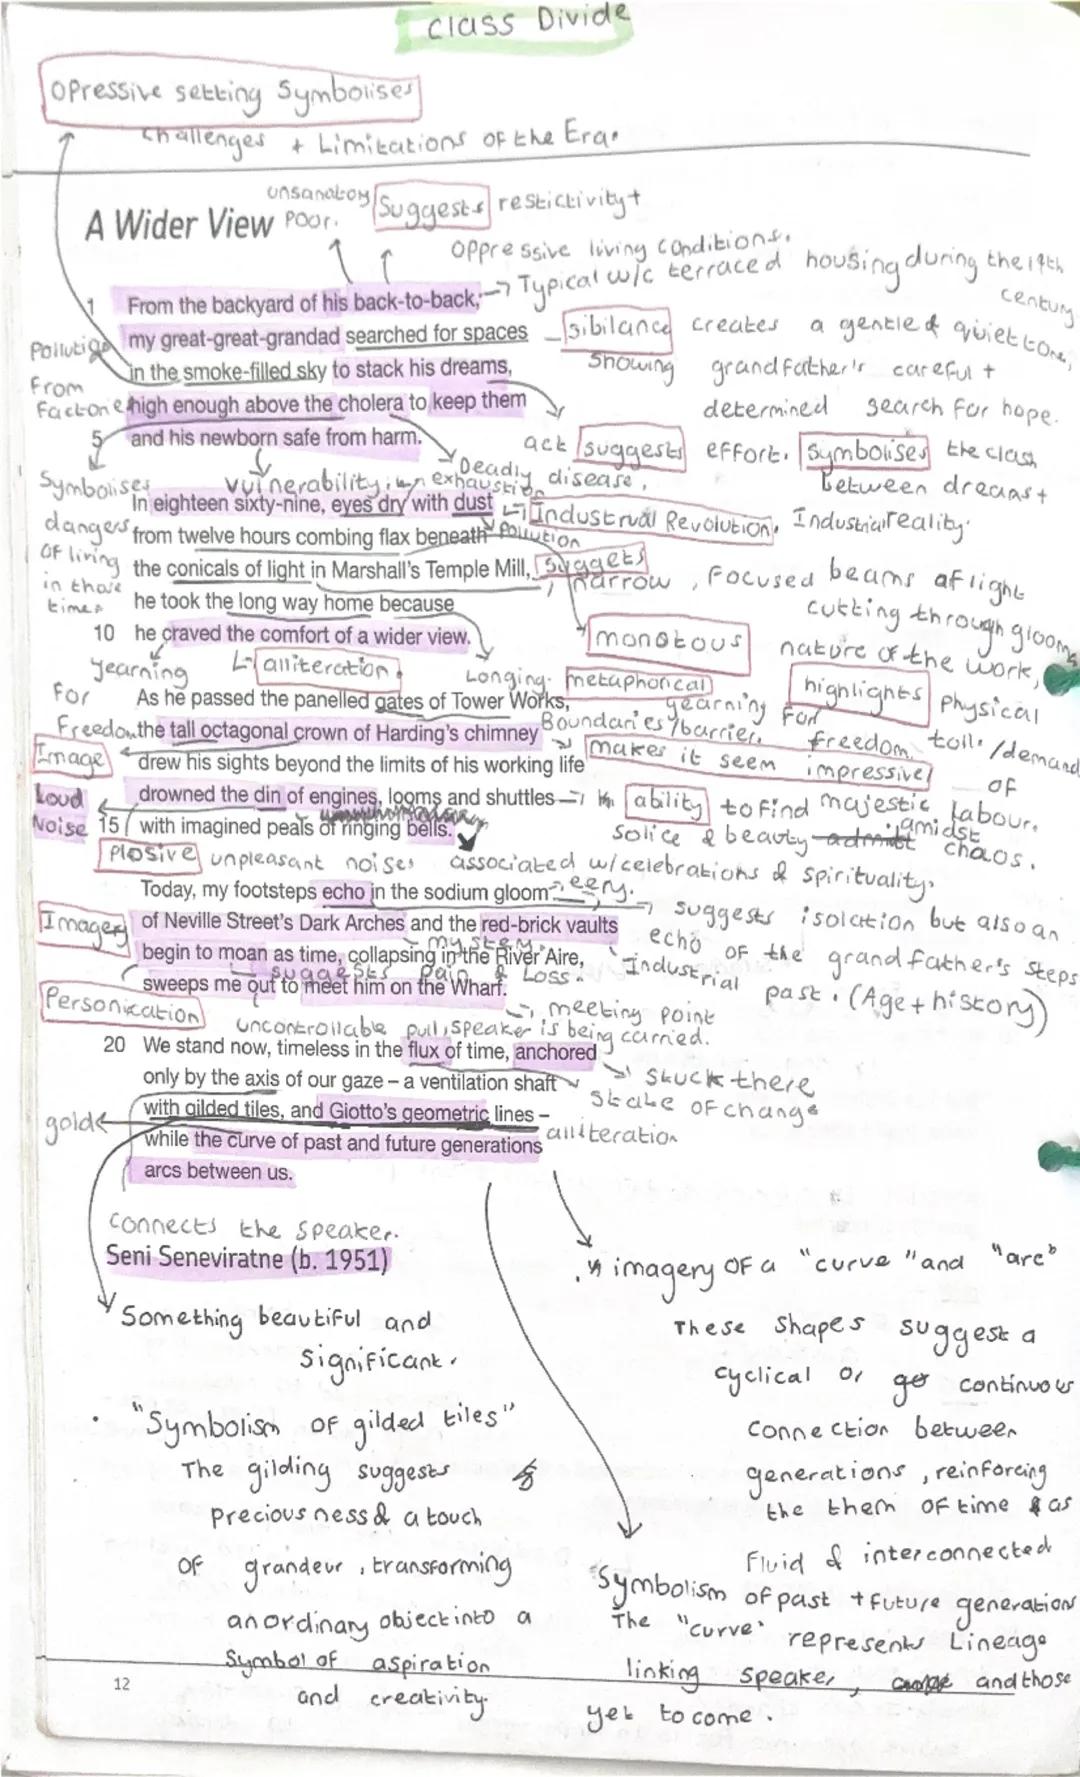 class Divide
Opressive setting Symbolises
challenges + Limitations of the Era.
unsanatory Suggests restictivity +
A Wider View Poor.
oppressive living conditions.
1 From the backyard of his back-to-back, → Typical w/c terraced housing during the 19th
century
my great-great-grandad searched for spaces
sibilance creates a gentle & quiet tone,
Pollution
in the smoke-filled sky to stack his dreams,
showing grandfather's careful +
From
Factorie
high enough above the cholera to keep them
determined search for hope.
5 and his newborn safe from harm.
act suggests effort. symbolises the clash
between dreams +
Industrial reality.
Symbolises
dangers
of living
in those
times
vulnerability.
exhaustion
Deadly disease.
In eighteen sixty-nine, eyes dry with dust
Industrual Revolution.
from twelve hours combing flax beneath
Pollution
the conicals of light in Marshall's Temple Mill,
suggets
narrow, Focused beams of light
cutting through gloom
he took the long way home because
10 he craved the comfort of a wider view.
monotous nature of the work,
highlights physical
toll /demand
of
labour.
yearning
For
Freedom
alliteration.
Longing. metaphorical
yearning for
freedom.
As he passed the panelled gates of Tower Works,
Boundaries/barrier.
the tall octagonal crown of Harding's chimney
makes it seem impressive/
majestic
Image
drew his sights beyond the limits of his working life
Loud
Noise
drowned the din of engines, looms and shuttles
ability to find
solice & beauty amidst
chaos.
15 with imagined peals of ringing bells.
Plosive unpleasant noises
associated w/celebrations & spirituality.
Today, my footsteps echo in the sodium gloom
eery.
suggests isolation but also an
echo of the grandfather's steps
Imagery
of Neville Street's Dark Arches and the red-brick vaults
mystery.
begin to moan as time, collapsing in the River Aire,
Industrial
past. (Age + history)
suggests pain & Loss.
sweeps me out to meet him on the Wharf.
Personication
meeting point
uncontrollable pull, speaker is being carried.
20 We stand now, timeless in the flux of time, anchored
stuck there
only by the axis of our gaze – a ventilation shaft
state of change
gold
with gilded tiles, and Giotto's geometric lines –
alliteration
while the curve of past and future generations
arcs between us.
connects the speaker.
Seni Seneviratne (b. 1951)
imagery OF a "curve" and "arc"
These shapes suggest a
cyclical or continuous
connection between
generations, reinforcing
the them of time as
Fluid & interconnected
Something beautiful and
significant.
"Symbolism of gilded tiles"
The gilding suggests
preciousness & a touch
OF grandeur, transforming
an ordinary object into a
Symbol of aspiration
and creativity.
Symbolism of past + future generations
The "curve" represents Lineage
linking speaker, and those
yet to come.
12